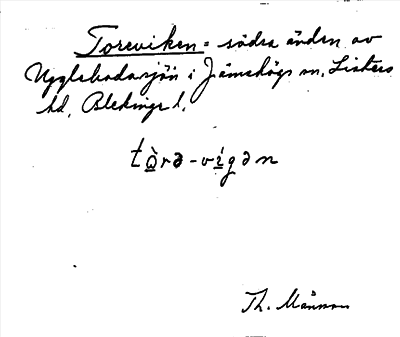 Toreviken = södra änden av
Ugglebodasjön i Jämshögs sn, Listers
hd, Blekinge l.
tò̱rə-ví̱gən
Th. Månsson